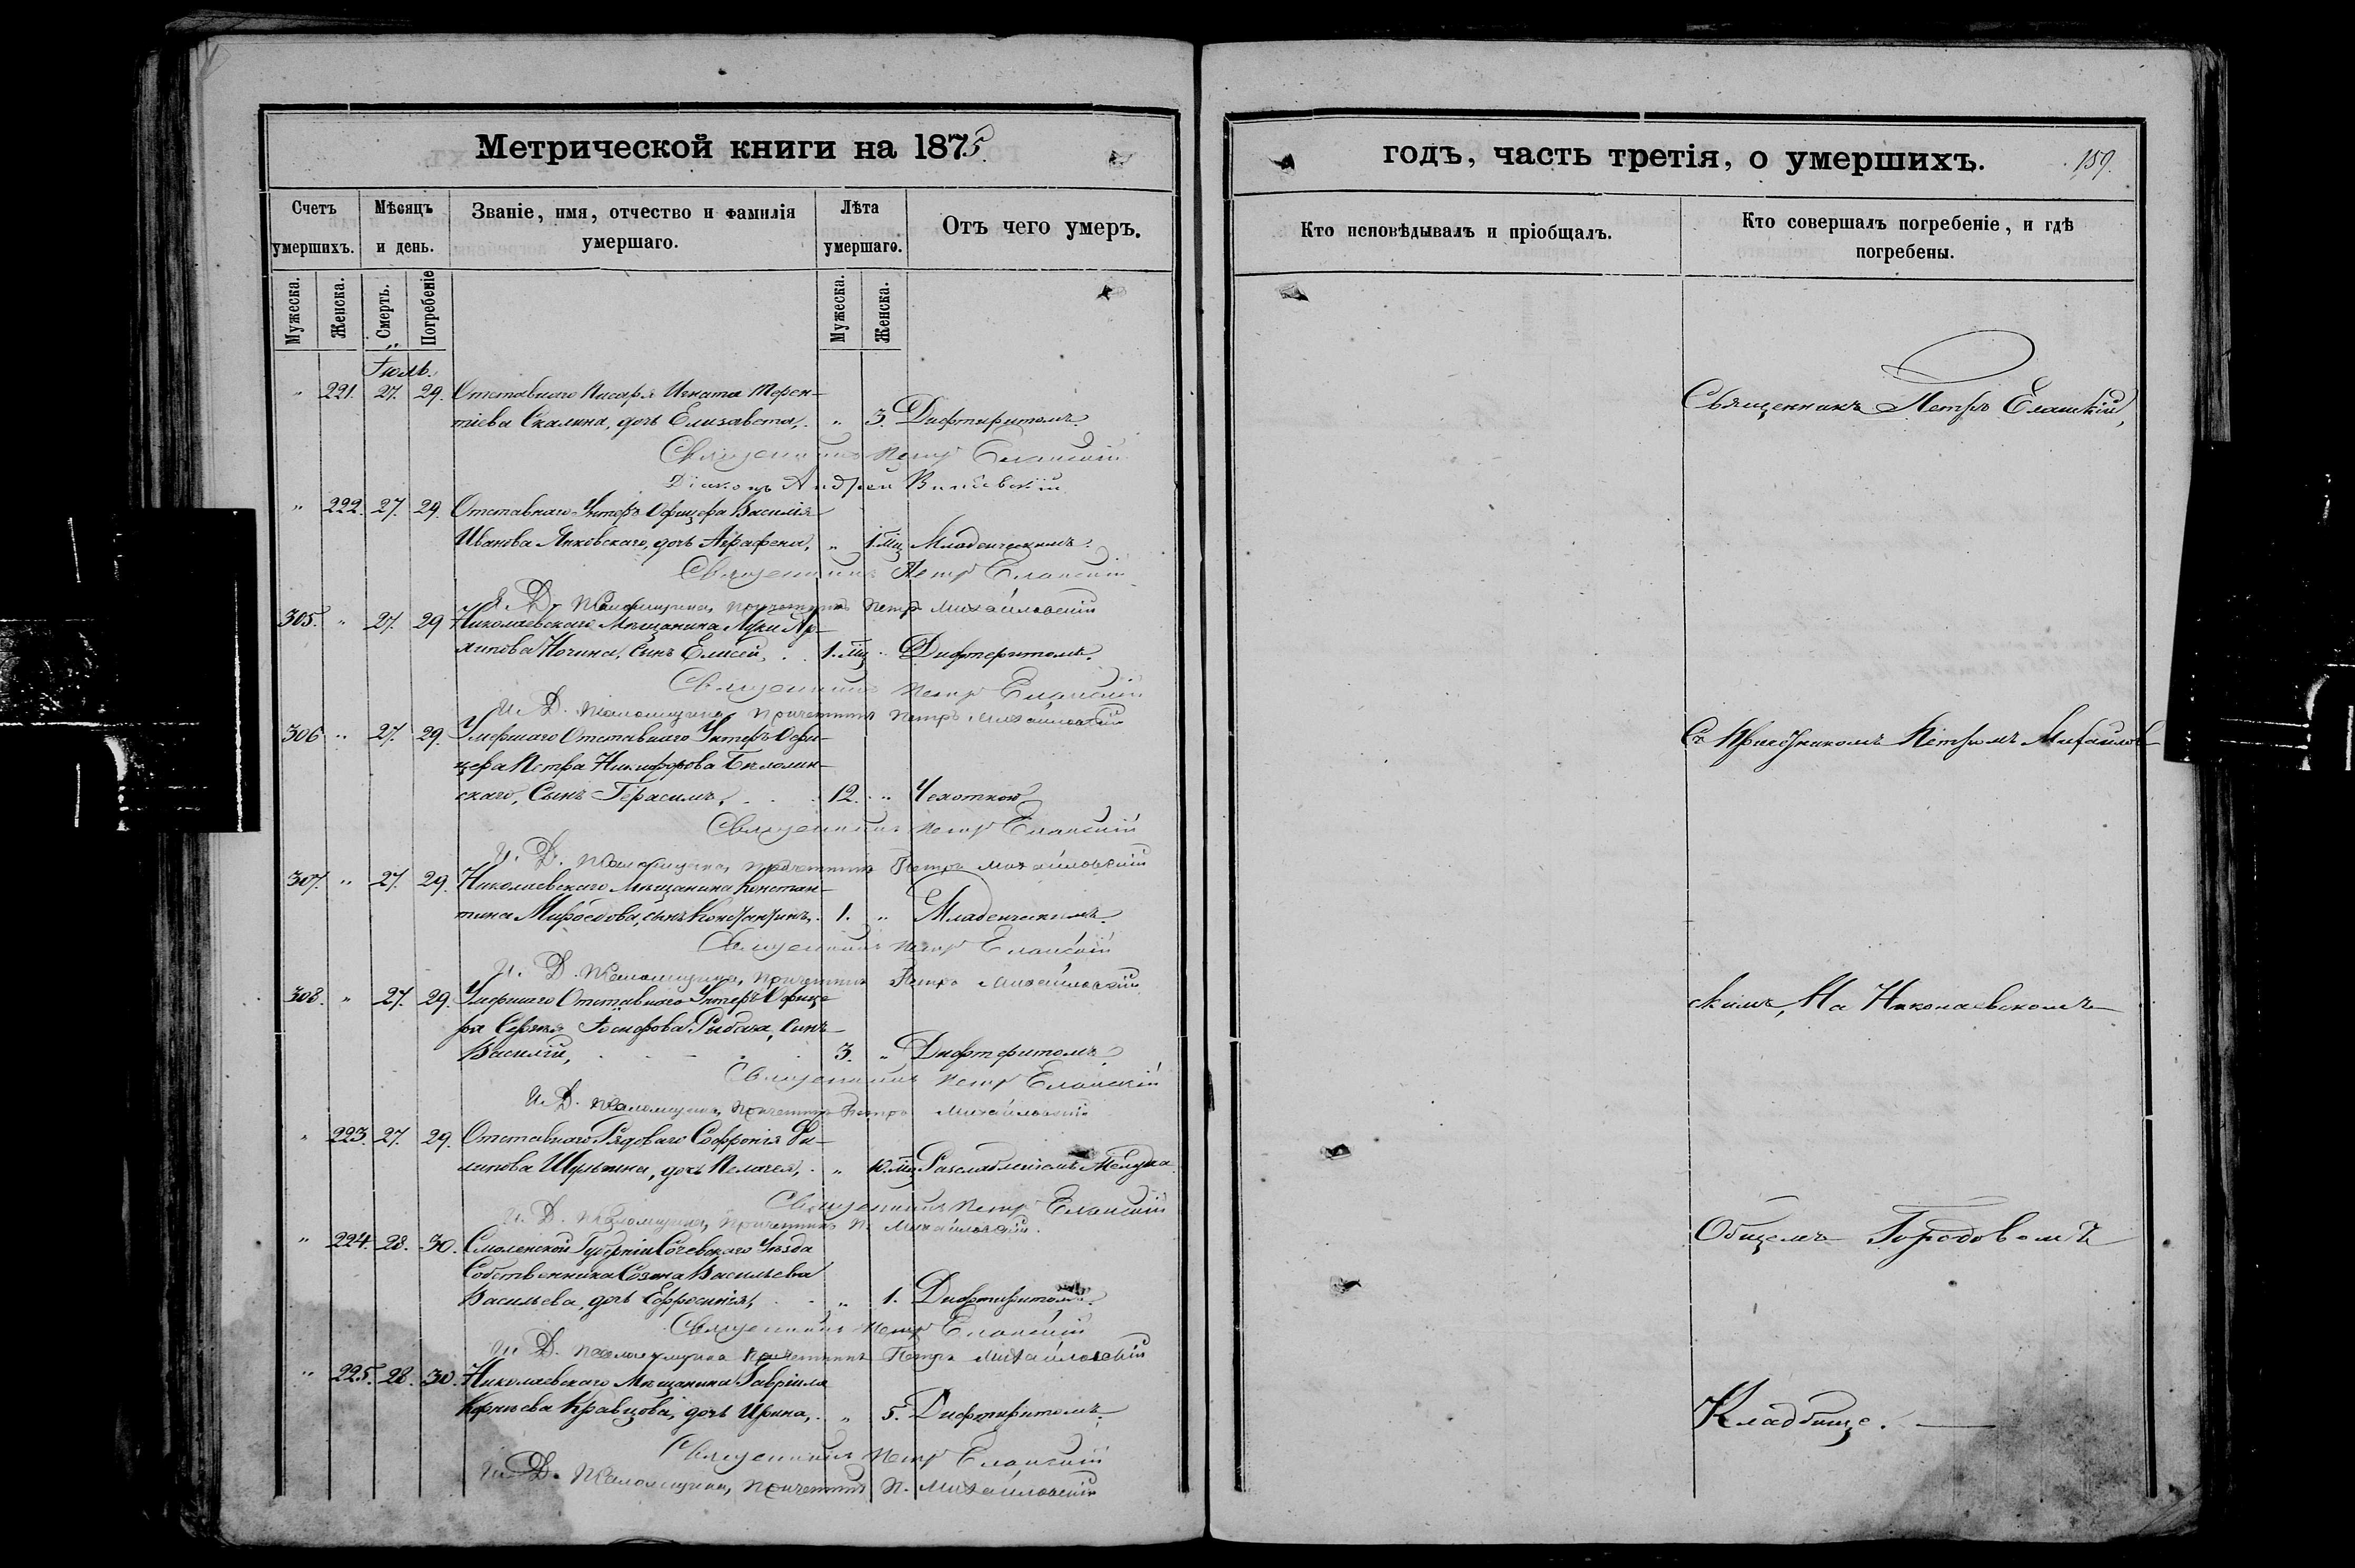 Метрической книги на 1875.
Счетъ умершихъ.
Мѣсяцъ и день.
Званіе, имя, отчество и фамилія умершаго.
Лѣта умершаго.
Отъ чего умеръ.
Мужеска.
Женска.
Смерть.
Погребеніе
Мужеска.
Женска.
Іюль.
" 221. 27. 29. Отставнаго Писаря Игната Терен-
тіева Скалина, дочь Елизавета, " 3. Дифтеритомъ.
Священникъ Петръ Еланскій
Діаконъ Андрей
" 222. 27. 29. Отставнаго Унтеръ Офицера Василія
Иванова Янковскаго, дочь Аграфена, " 1. мц Младенческимъ.
Священникъ Петръ Еланскій
И. Д. Псаломщика, Причетникъ Петръ Михайловскій
305. " 27. 29 Николаевскаго Мѣщанина Луки Ар-
хипова Ночина, сынъ Елисей, 1. мц " Дифтеритомъ.
Священникъ Петръ Еланскій
И. Д. Псаломщика, Причетникъ Петръ Михайловскій
306 " 27. 29. Умершаго Отставнаго Унтеръ Офи-
цера Петра Никифорова Бѣлолин-
скаго, Сынъ Герасимъ, 12. " Чахоткой
Священникъ Петръ Еланскій
И. Д. Псаломщика, Причетникъ Петръ Михайловскій
307. " 27. 29. Николаевскаго Мѣщанина Констан-
тина Мироѣдова, сынъ Константинъ, 1. " Младенческимъ.
Священникъ Петръ Еланскій
И. Д. Псаломщика, Причетникъ Петръ Михайловскій
308. " 27. 29. Умершаго Отставнаго Унтеръ Офице-
ра Сергѣя Іосифова Рыбака, сынъ
Василій, 3. " Дифтеритомъ
Священникъ Петръ Еланскій
И. Д. Псаломщика, Причетникъ Петръ Михайловскій
" 223. 27. 29. Отставнаго Рядоваго Софронія Фи-
липова дочь Пелагея, " 10. мц Разслабленіемъ Желудка
Священникъ Петръ Еланскій
И. Д. Псаломщика, Причетникъ П. Михайловскій.
" 224. 28. 30. Смоленской Губерніи Сычевскаго Уѣзда
Собственника Созона Васильева
Васильева, дочь Ефросинія, " 1. Дифтеритомъ.
Священникъ Петръ Еланскій
И. Д. Псаломщика Причетникъ Петръ Михайловскій
" 225. 28. 30. Николаевскаго Мѣщанина Гавріила
Корнѣева Кравцова, дочь Ирина, " 5. Дифтеритомъ.
Священникъ Петръ Еланскій
И. Д. Псаломщика, Причетникъ П. Михайловскій
годъ, часть третія, о умершихъ.
159.
Кто исповѣдывалъ и пріобщалъ.
Кто совершалъ погребеніе, и гдѣ погребены.
Священникъ Петръ Еланскій,
Съ Причетникомъ Петромъ Михайлов-
скимъ, На Николаевскомъ
Общемъ Городовомъ
Кладбище.